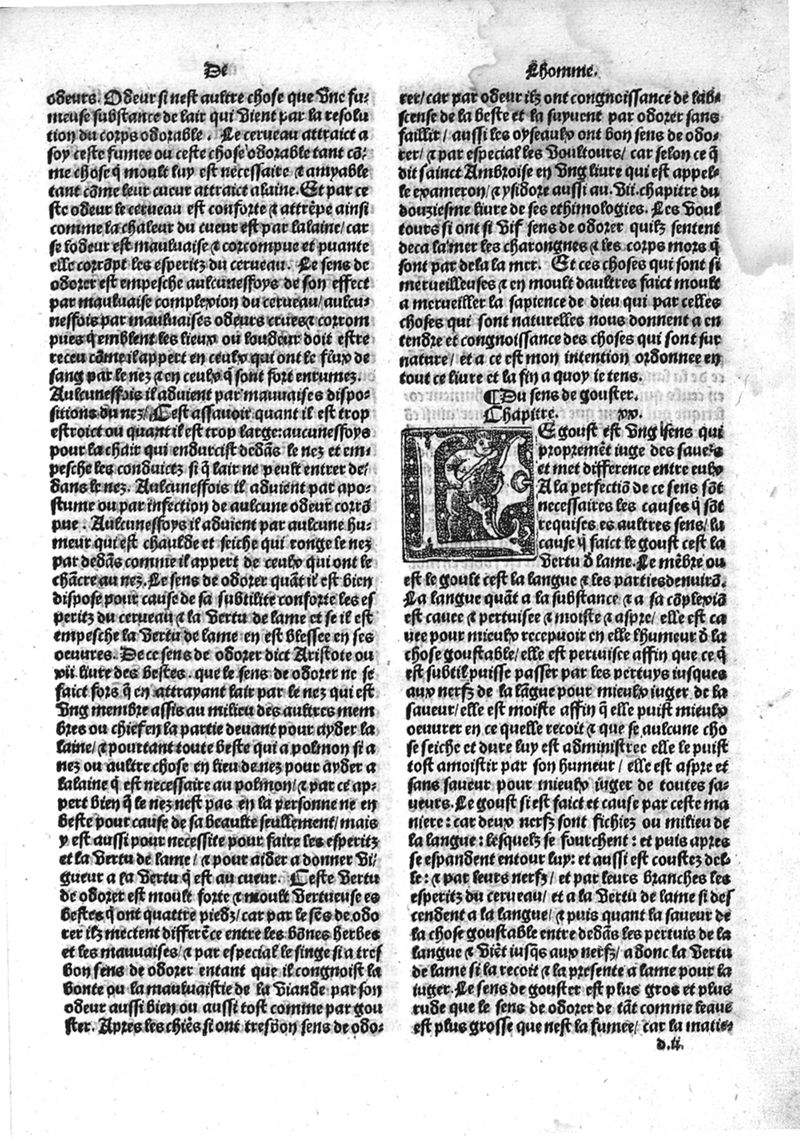 De
odeurs. Odeur si nest aultre chose que vne fu-
meuse substance de lair qui vient par la resolu
tion du corps odorable. Le cerueau attraict a
soy ceste fumee ou ceste chose odorable tant cō-
me chose q̄ moult luy est necessaire & amyable
tant cōme leur cueur attraict alaine. Et par ce
ste odeur le cerueau est conforte & attrēpe ainsi
comme la chaleur du cueur est par lalaine/ car
se lodeur est mauluaise & corcompue et puante
elle corrōpt les esperitz du cerueau. Le sens de
odorer est empesche aulcuneffoys de son effect
par mauluaise complexion du cerueau/ aulcu-
neffois par mauluaises odeurs crues & corrom
pues q̄ emblent les lieux ou loudeur doit estre
receu cōme il appert en ceulx qui ont le flux de
sang par le nez & en ceulx q̄ sont fort enrumez.
Aulcuneffois il aduient par mauuaises dispo-
sitions du nez/ Cest assauoir quant il est trop
estroict ou quant il est trop large: aucuneffoys
pour la chair qui endurcist dedās le nez et em-
pesche les conduictz si q̄ lair ne peult entrer de/
dans le nez. Aulcuneffois il aduient par apo-
stume ou par infection de aulcune odeur corrō
pue. Aulcuneffoys il aduient par aulcune hu-
meur qui est chaulde et seiche qui ronge le nez
par dedās comme il appert de ceulx qui ont le
chācre au nez. Le sens de odorer quāt il est bien
dispose pour cause de sa subtilite conforte les es
peritz du cerueau & la vertu de lame et se il est
empesche la vertu de lame en est blessee en ses
oeuures. De ce sens de odorer dict Aristote ou
xii. liure des bestes. que le sens de odorer ne se
faict fors q̄ en attrayant lair par le nez qui est
vng membre assis au milieu des aultres mem
bres ou chief en la partie deuant pour ayder la
laine/ & pourtant toute beste qui a polmon si a
nez ou aultre chose en lieu de nez pour ayder a
lalaine q̄ est necessaire au polmon/ & par ce ap-
pert bien q̄ le nez nest pas en la personne ne en
beste pour cause de sa beaulte seullement/ mais
y est aussi pour necessite pour faire les esperitz
et la vertu de lame/ & pour aider a donner vi/
gueur a la vertu q̄ est au cueur. Ceste vertu
de odorer est moult forte & moult vertueuse es
bestes q̄ ont quattre piedz/ car par le sēs de odo
rer ilz mectent differēce entre les bōnes herbes
et les mauuaises/ & par especial le singe si a tres
bon sens de odorer entant que il congnoist la
bonte ou la mauuaistie de la viande par son
odeur aussi bien ou aussi tost comme par gou
ster. Apres les chiēs si ont tresbon sens de odo-
Lhomme.
rer/ car par odeur ilz ont congnoissance de lab-
scense de la beste et la suyuent par odorer sans
faillir/ aussi les oyseaulx ont bon sens de odo-
rer/ & par especial les voultours/ car selon ce q̄
dit sainct Ambroise en vng liure qui est appel-
le exameron/ & ysidore aussi au .vii. chapitre du
douziesme liure de ses ethimologies. Les voul
tours si ont si vif sens de odorer quilz sentent
deca la mer les charongnes & les corps mors q̄
sont par dela la mer. Et ces choses qui sont si
merueilleuses & en moult daultres faict moult
a merueiller la sapience de dieu qui par celles
choses qui sont naturelles nous donnent a en
tendre et congnoissance des choses qui sont sur
nature/ et a ce est mon intention ordonnee en
tout ce liure et la fin a quoy ie tens.
¶ Du sens de gouster.
Chapitre. xx.
LE goust est vng sens qui
propremēt iuge des saueurs
et met difference entre eulx
A la perfectiō de ce sens sōt
necessaires les causes q̄ sōt
requises es aultres sens/ la
cause q̄ faict le goust cest la
vertu d̄ lame. Le mēbre ou
est le goult cest la langue & les parties denuirō.
La langue quāt a la substance & a sa cōplexiō
est cauee & pertuisee & moiste & aspre/ elle est ca
uee pour mieulx recepuoir en elle lhumeur d̄ la
chose goustable/ elle est pertuisee affin que ce q̄
est subtil puisse passer par les pertuys iusques
aux nerfz de la lāgue pour mieulx iuger de la
saueur/ elle est moiste affin q̄ elle puist mieulx
oeuurer en ce quelle recoit & que se aulcune cho
se seiche et dure luy est administree elle le puist
tost amoistir par son humeur/ elle est aspre et
sans saueur pour mieulx iuger de toutes sa-
ueurs. Le goust si est faict et cause par ceste ma
niere: car deux nerfz sont fichiez ou milieu de
la langue: lesquelz se fourchent: et puis apres
se espandent entour luy: et aussi est coustez del-
le: & par leurs nerfz/ et par leurs branches les
esperitz du cerueau/ et a la vertu de lame si des
cendent a la langue/ & puis quant la saueur de
la chose goustable entre dedās les pertuis de la
langue & viēt iusq̄s aux nerfz/ a donc la vertu
de lame si la recoit & la presente a lame pour la
iuger. Le sens de gouster est plus gros et plus
rude que le sens de odorer de tāt comme leaue
est plus grosse que nest la fumee/ car la matie-
d.ii.